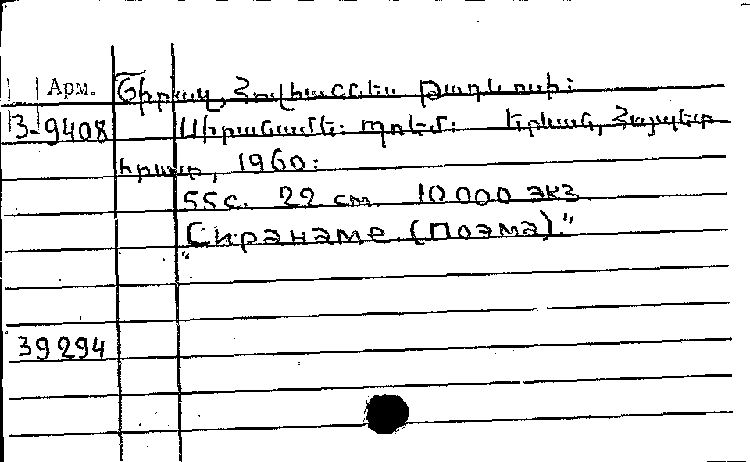 Арм. Շիրազ, Հովհաննես Թադևոսի:
3-9408 Սիրանամե: պոեմ: Երևան, Հայպետ
հրատ, 1960:
55с. 22 cm. 10 000 экз
"Сиранаме (Поэма)."
39294